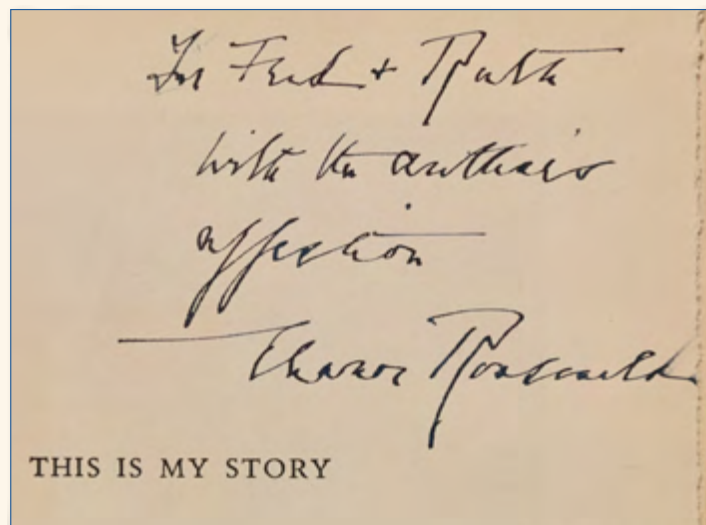 For Fred + Ruth
with the author's
affection
Eleanor Roosevelt
THIS IS MY STORY